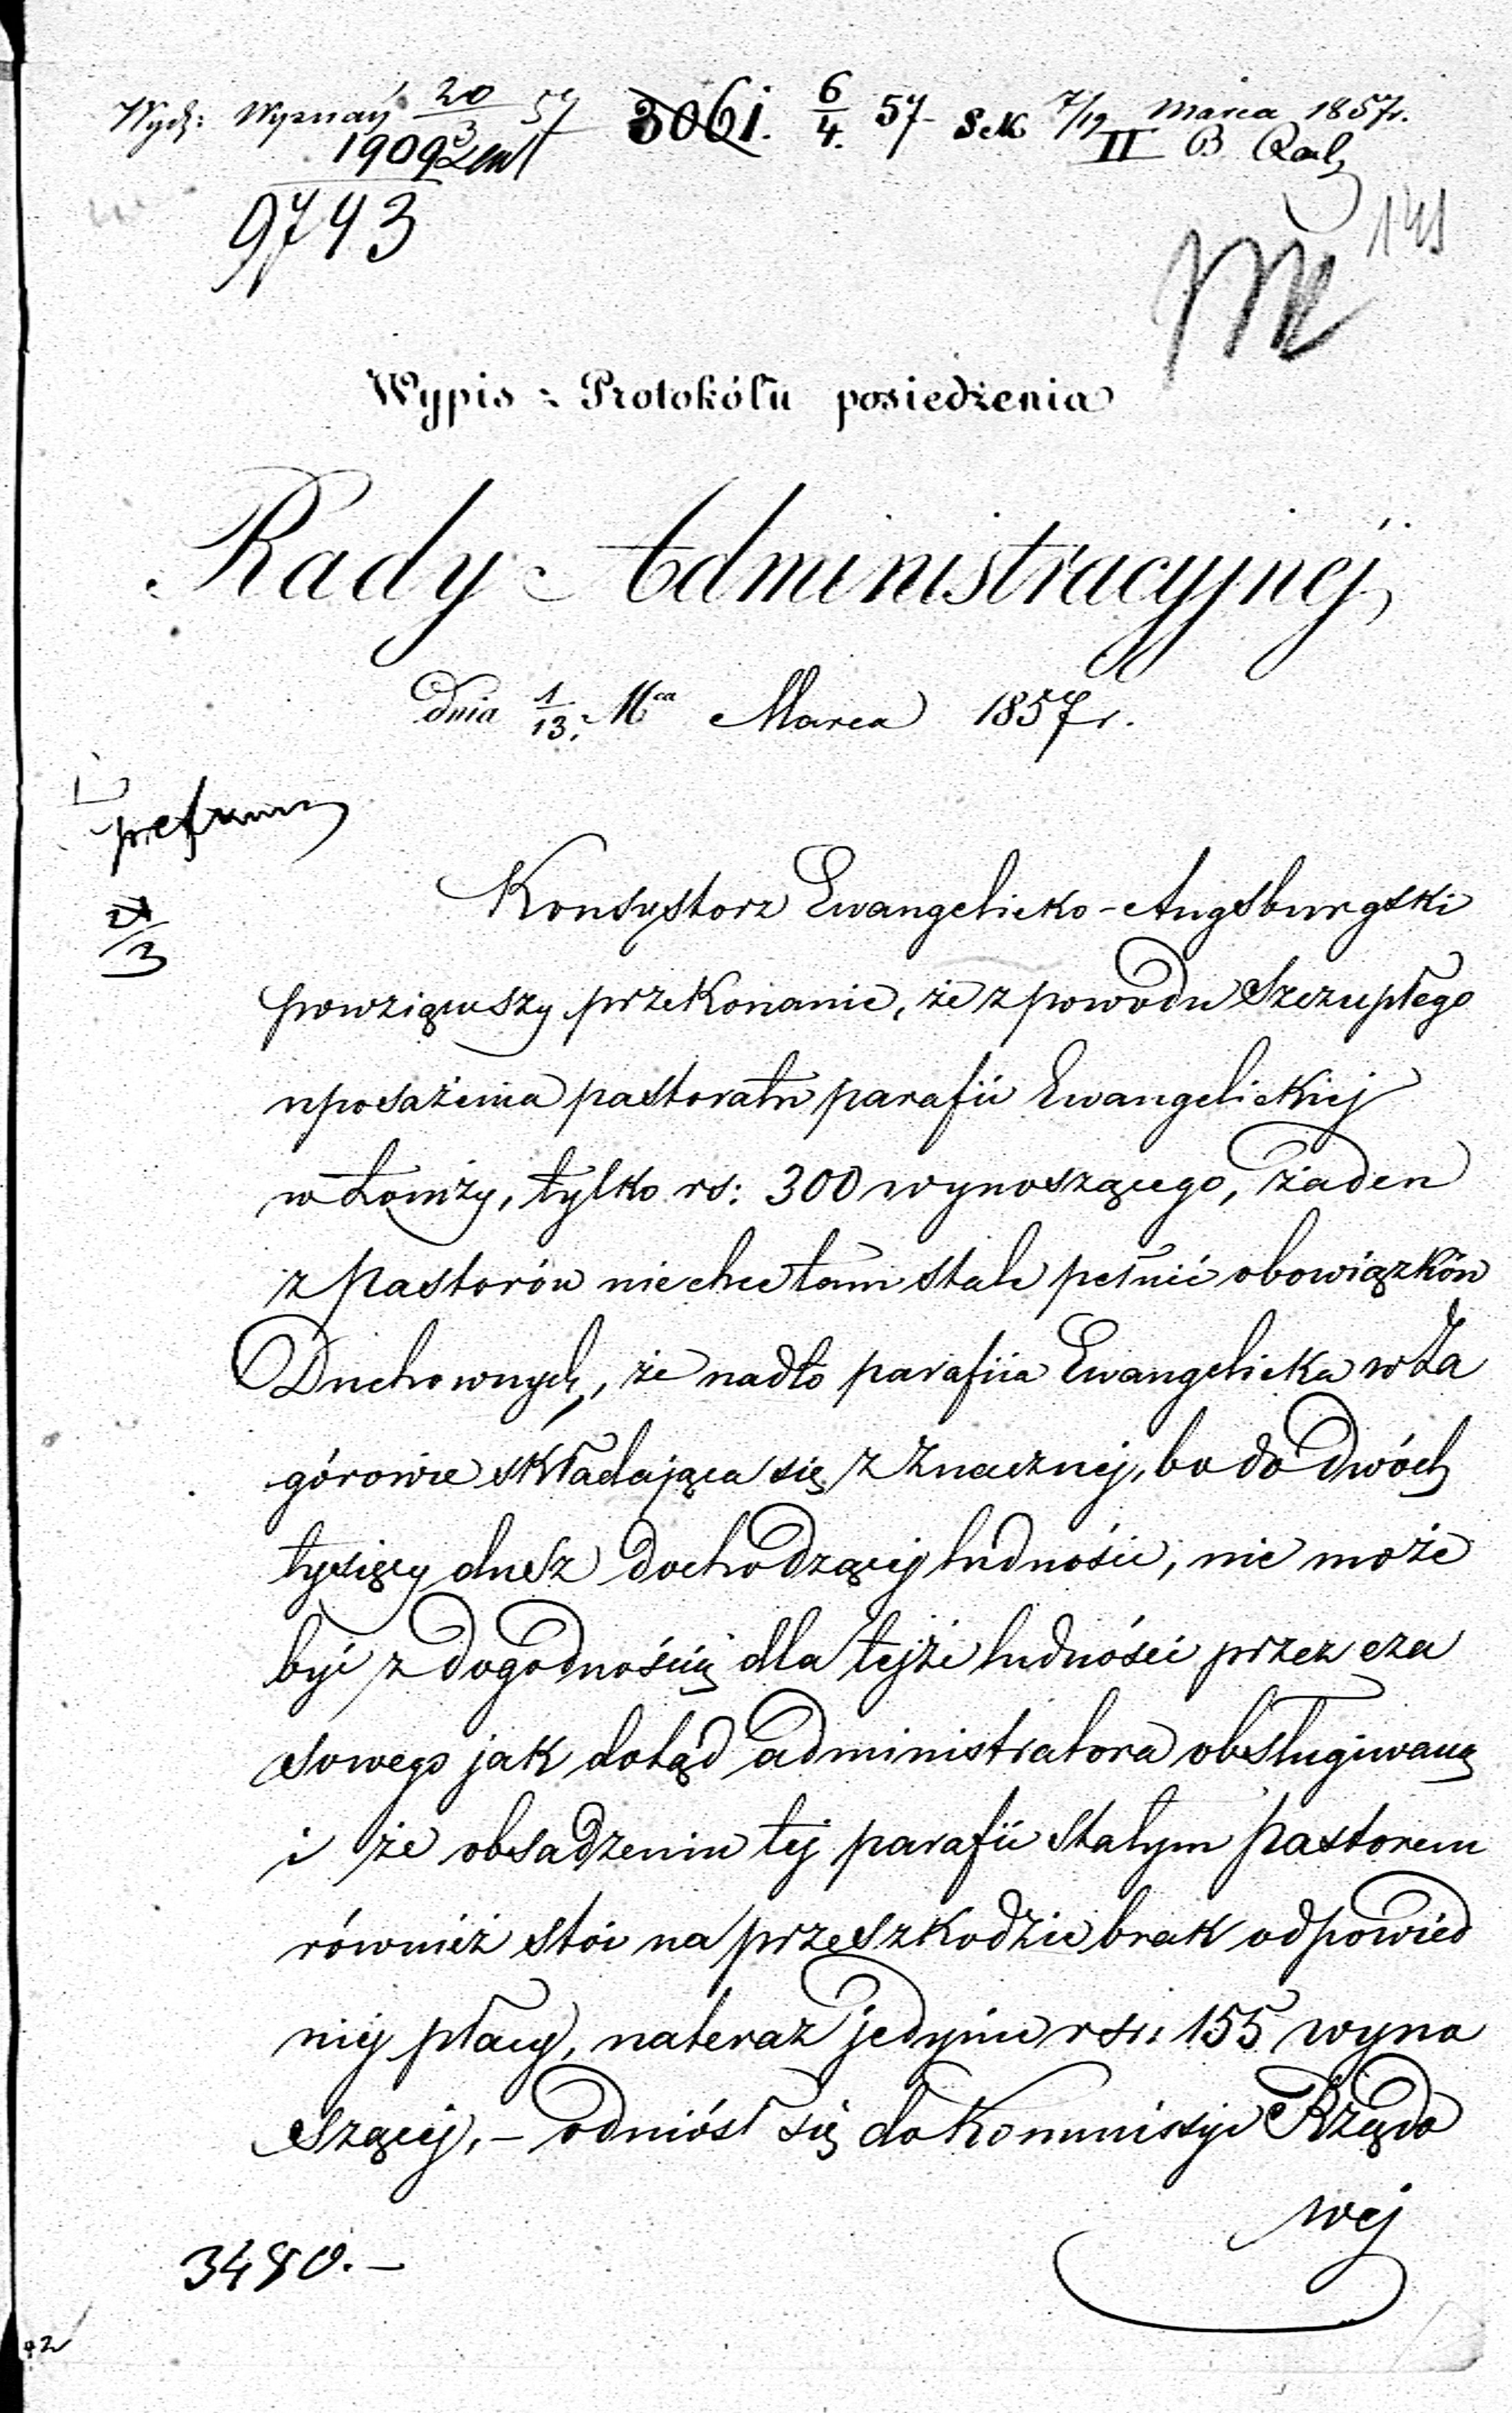 Wydz: Wyznań 20/3 57 3061. 6/4. 57 7/19 Marca 1857r.
19093 II B
9743
141
Wypis z Protokółu posiedzenia
Rady Administracyjnéj
dnia 1/13. Mca Marca 1857r.
Konsystorz Ewangelicko-Augsburgski
powziąwszy przekonanie, że z powodu szczupłego
uposażenia pastoratu parafii Ewangelickiej
w Łomży, tylko rs: 300 wynoszącego, żaden
z Pastorów nie chce tam stale pełnić obowiązków
Duchownych, że nadto parafiia Ewangelicka w Za
górowie składająca się z znacznej, bo do dwóch
tysięcy dusz dochodzącej ludności, nie może
być z dogodnością dla tejże ludności przez cza
sowego jak dotąd administratora obsługiwaną
i że obsadzeniu tej parafii stałym Pastorem
również stoi na przeszkodzie brak odpowied
niej płacy, nateraz jedynie rsr: 155 wyno
szącej, – odniósł się do Kommissyi Rządo
wej
3480.–
42